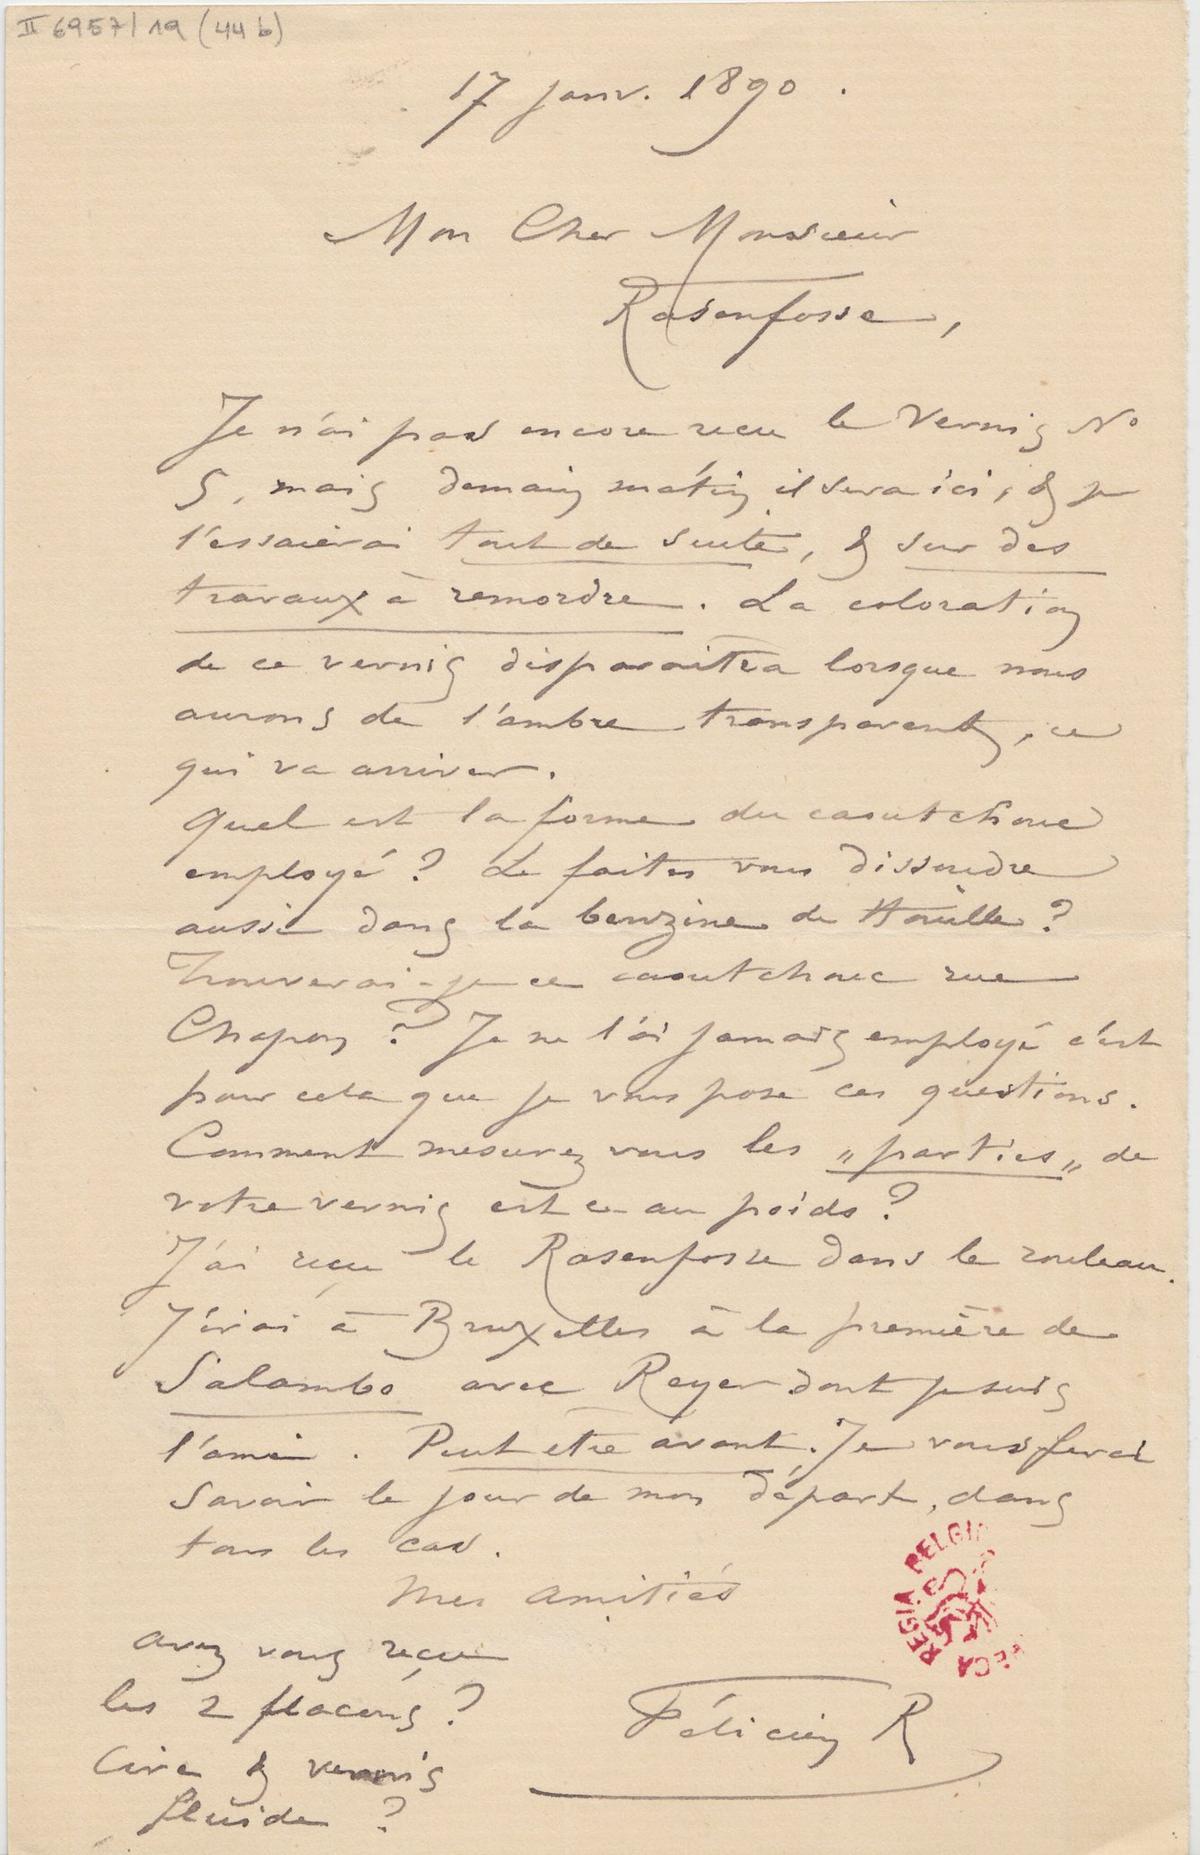 II 6957/19 (44 b)
17 janv. 1890.
Mon Cher Monsieur
Rasenfosse,
Je n'ai pas encore recu le Vernis No
5, mais demain matin il sera ici, & je
l'essaierai tout de suite, & sur des
travaux à remordre. La coloration
de ce vernis disparaitra lorsque nous
aurons de l'ambre transparent, ce
qui va arriver.
Quel est la forme du caoutchouc
employé ? Le faites vous dissoudre
aussi dans la benzine de Houille ?
Trouverai-je ce caoutchouc rue
Chapon ? Je ne l'ai jamais employé c'est
pour cela que je vous pose ces questions.
Comment mesurez vous les „parties„ de
votre vernis est ce au poids ?
J'ai reçu le Rasenfosse dans le rouleau.
J'irai à Bruxelles à la première de
Salambo avec Reyer dont je suis
l'ami. Peut etre avant. Je vous ferai
savoir le jour de mon départ, dans
tous les cas.
Mes amitiés
avez vous reçu
les 2 flacons ?
Cire & vernis
fluide ?
Félicien R
REGIA BELGI
ECA